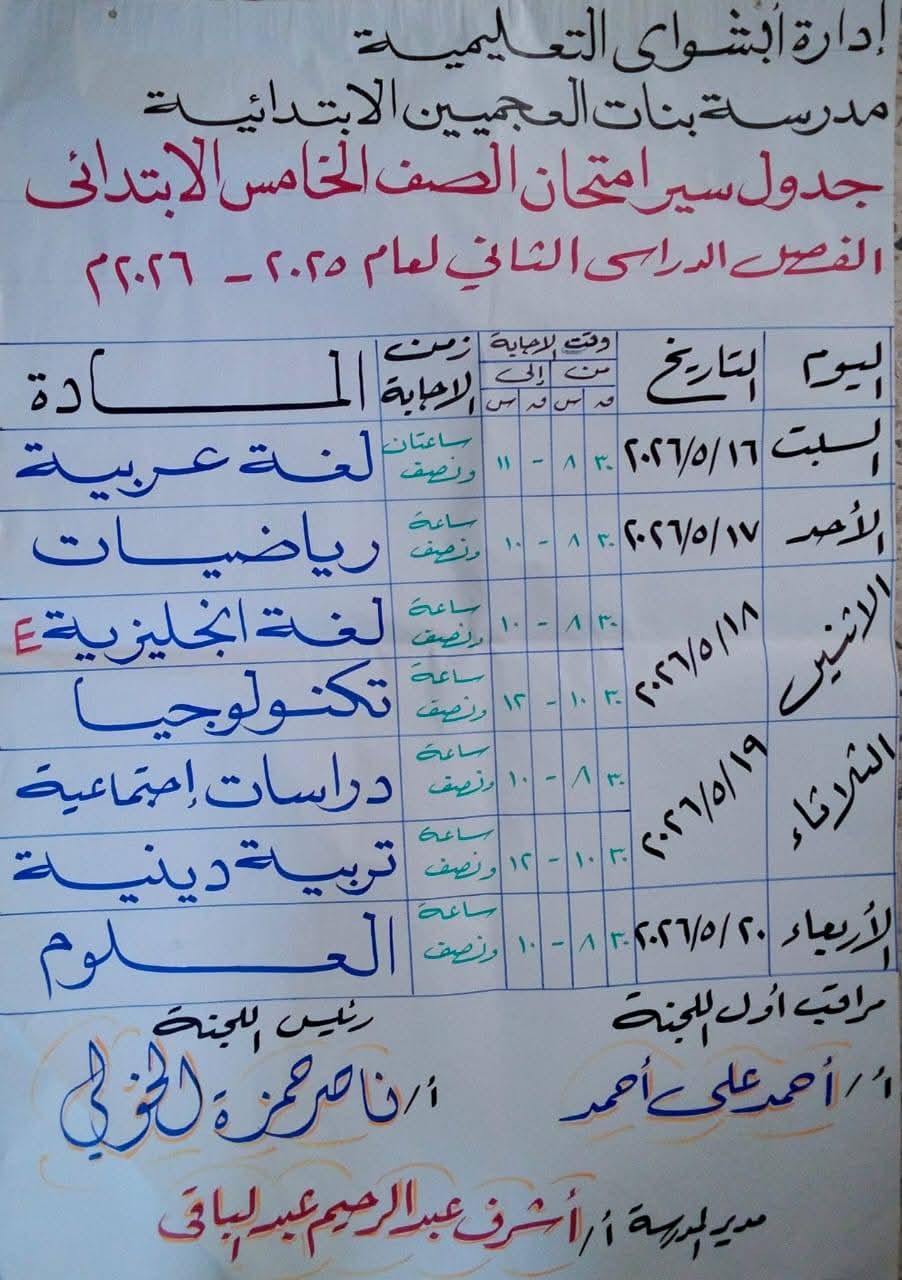 إدارة أبشواى التعليمية
مدرسة بنات العجميين الابتدائية
جدول سير امتحان الصف الخامس الابتدائى
الفصل الدراسى الثاني لعام ٢٠٢٥ - ٢٠٢٦م
اليوم التاريخ وقت الاجابة زمن الاجابة المادة
من إلى
ق س ق س
السبت ٢٠٢٦/٥/١٦ ٣٠ ٨ - ١١ ساعتان ونصف لغة عربية
الأحد ٢٠٢٦/٥/١٧ ٣٠ ٨ - ١٠ ساعة ونصف رياضيات
الاثنين ٢٠٢٦/٥/١٨ ٣٠ ٨ - ١٠ ساعة ونصف لغة انجليزية E
٣٠ ١٠ - ١٢ ساعة ونصف تكنولوجيا
الثلاثاء ٢٠٢٦/٥/١٩ ٣٠ ٨ - ١٠ ساعة ونصف دراسات إجتماعية
٣٠ ١٠ - ١٢ ساعة ونصف تربية دينية
الأربعاء ٢٠٢٦/٥/٢٠ ٣٠ ٨ - ١٠ ساعة ونصف العلوم
مراقب أول اللجنة رئيس اللجنة
أ/ أحمد على أحمد أ/ ناصر حمزة الخولي
مدير المدرسة أ/ أشرف عبد الرحيم عبد الباقى